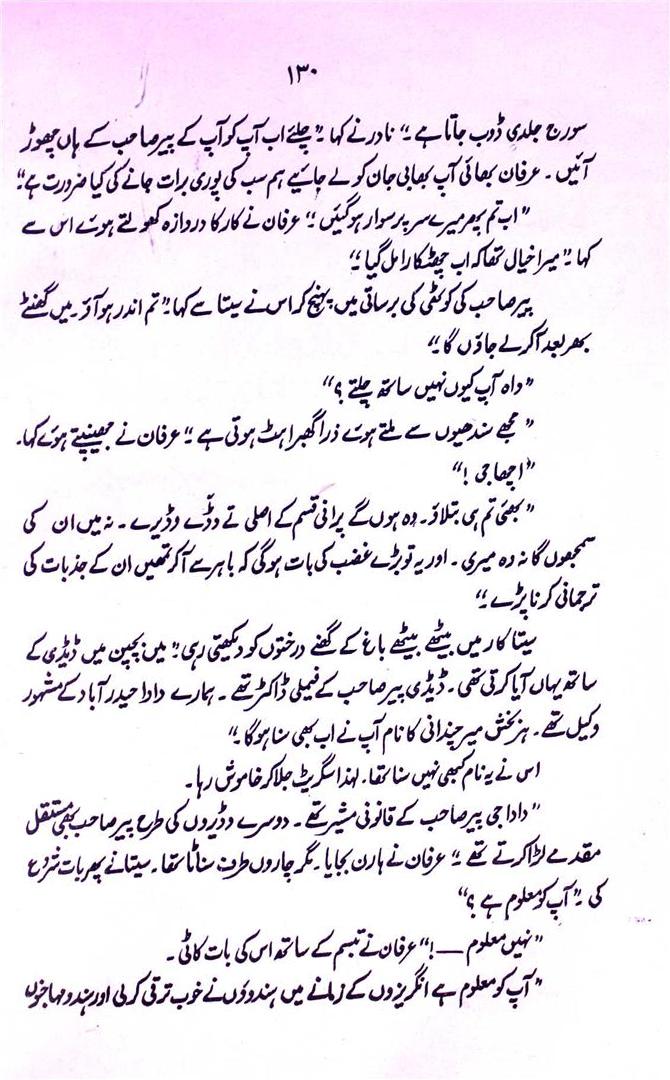 ۱۳۰
سورج جلدی ڈوب جاتا ہے ۔“ نادر نے کہا ۔”چلئے اب آپ کو آپ کے پیر صاحب کے ہاں چھوڑ
آئیں ۔ عرفان بھائی آپ بھابی جان کو لے جائیے ہم سب کی پوری برات جانے کی کیا ضرورت ہے“
”اب تم پھر میرے سر پر سوار ہو گئیں ۔“ عرفان نے کار کا دروازہ کھولتے ہوئے اس سے
کہا ۔”میرا خیال تھا کہ اب چھٹکارا مل گیا ۔“
پیر صاحب کی کوٹھی کی برساتی میں پہنچ کر اس نے سیتا سے کہا ۔”تم اندر ہو آؤ ۔ میں گھنٹے
بھر بعد آ کر لے جاؤں گا ۔“
”واہ آپ کیوں نہیں ساتھ چلتے ؟“
”مجھے سندھیوں سے ملتے ہوئے ذرا گھبراہٹ ہوتی ہے ۔“ عرفان نے جھینپتے ہوئے کہا۔
”اچھا جی !“
”بھئی تم ہی بتلاؤ ۔ وہ ہوں گے پرانی قسم کے اصلی تے وڈّے وڈیرے ۔ نہ میں ان کی
سمجھوں گا نہ وہ میری ۔ اور یہ تو بڑے غضب کی بات ہو گی کہ باہر سے آ کر تمھیں ان کے جذبات کی
ترجمانی کرنا پڑے ۔“
سیتا کار میں بیٹھے بیٹھے باغ کے گھنے درختوں کو دیکھتی رہی ۔”میں بچپن میں ڈیڈی کے
ساتھ یہاں آیا کرتی تھی ۔ ڈیڈی پیر صاحب کے فیملی ڈاکٹر تھے ۔ ہمارے دادا حیدرآباد کے مشہور
وکیل تھے ۔ ہربخش میرچندانی کا نام آپ نے اب بھی سنا ہو گا ۔“
اس نے یہ نام کبھی نہیں سنا تھا ۔ لہٰذا سگریٹ جلا کر خاموش رہا ۔
”دادا جی پیر صاحب کے قانونی مشیر تھے ۔ دوسرے وڈیروں کی طرح پیر صاحب بھی مستقل
مقدمے لڑا کرتے تھے ۔“ عرفان نے ہارن بجایا ۔ مگر چاروں طرف سناٹا تھا ۔ سیتا نے پھر بات شروع
کی ۔”آپ کو معلوم ہے ؟“
”نہیں معلوم —!“ عرفان نے تبسم کے ساتھ اس کی بات کاٹی ۔
”آپ کو معلوم ہے انگریزوں کے زمانے میں ہندوؤں نے خوب ترقی کر لی اور ہندو مہاجنوں